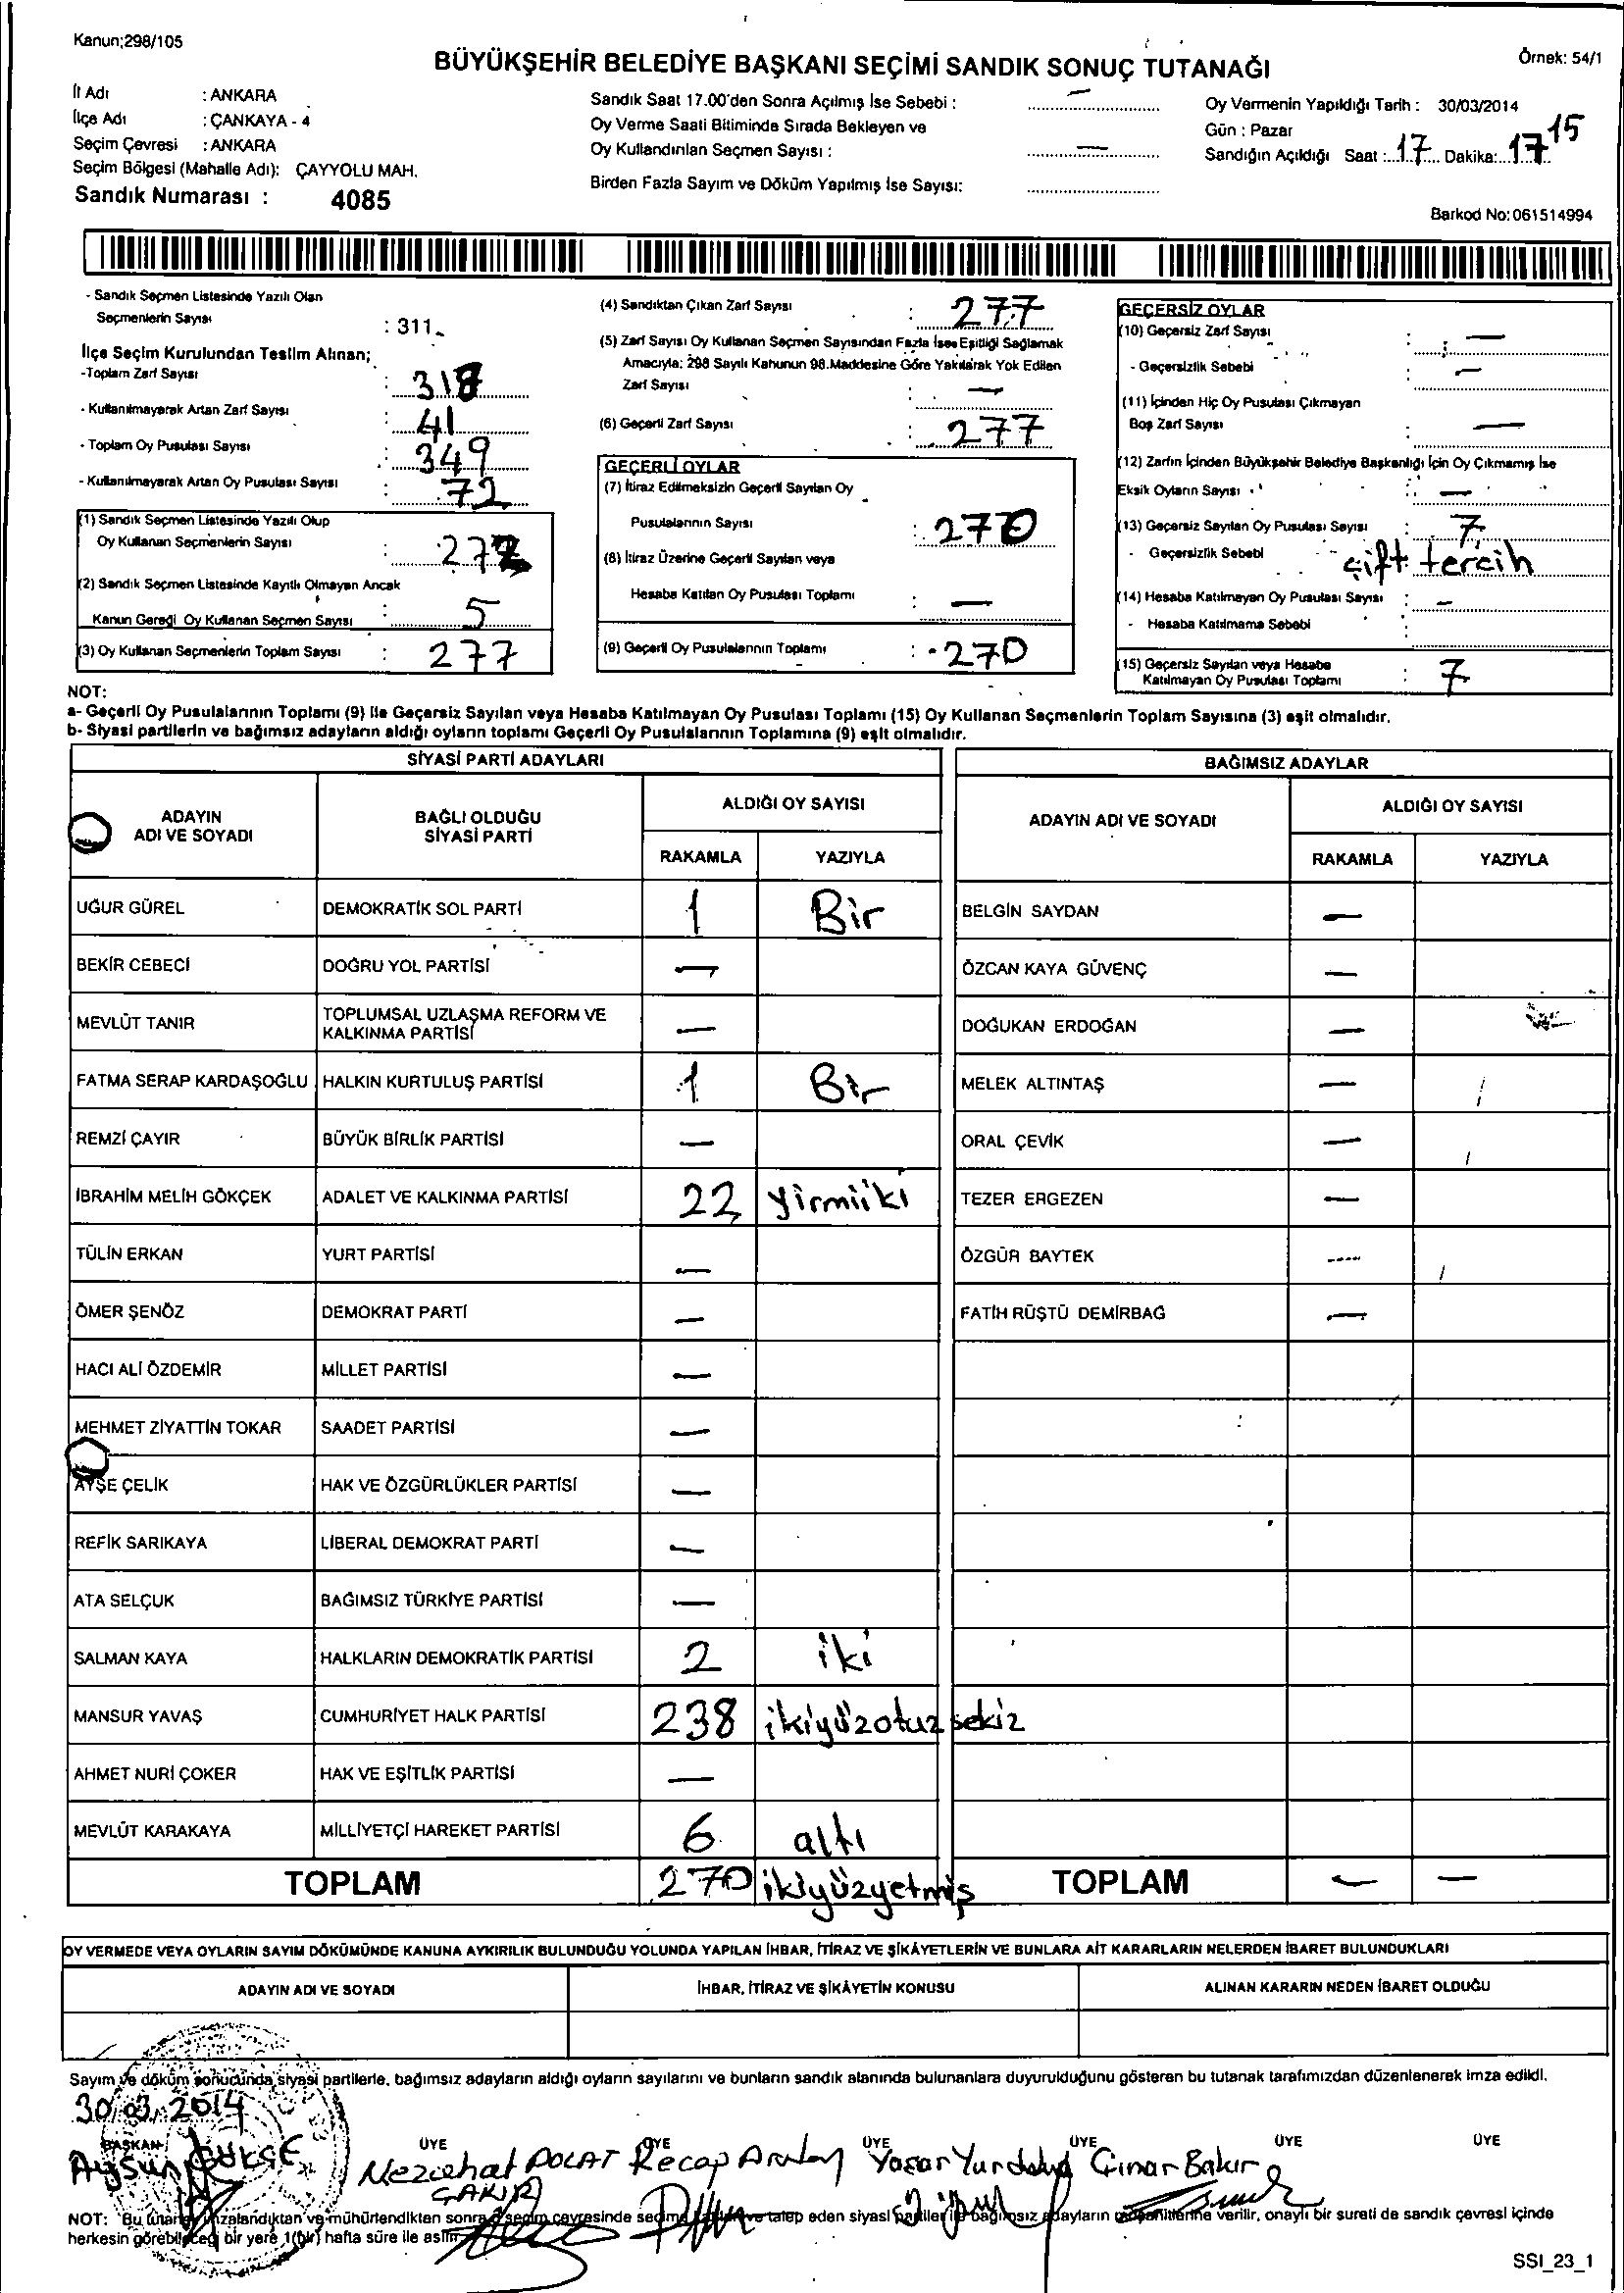 Kanun;298/105
Örnek: 54/1
BÜYÜKŞEHİR BELEDİYE BAŞKANI SEÇİMİ SANDIK SONUÇ TUTANAĞI
İl Adı : ANKARA
İlçe Adı : ÇANKAYA - 4
Seçim Çevresi : ANKARA
Seçim Bölgesi (Mahalle Adı): ÇAYYOLU MAH.
Sandık Numarası : 4085
Sandık Saat 17.00'den Sonra Açılmış İse Sebebi : —
Oy Verme Saati Bitiminde Sırada Bekleyen ve
Oy Kullandırılan Seçmen Sayısı : —
Birden Fazla Sayım ve Döküm Yapılmış İse Sayısı:
Oy Vermenin Yapıldığı Tarih : 30/03/2014
Gün : Pazar
Sandığın Açıldığı Saat : 17 Dakika: 17 15
Barkod No: 061514994
- Sandık Seçmen Listesinde Yazılı Olan
Seçmenlerin Sayısı : 311
İlçe Seçim Kurulundan Teslim Alınan;
-Toplam Zarf Sayısı : 318
- Kullanılmayarak Artan Zarf Sayısı : 41
- Toplam Oy Pusulası Sayısı : 349
- Kullanılmayarak Artan Oy Pusulası Sayısı : 72
(1) Sandık Seçmen Listesinde Yazılı Olup
Oy Kullanan Seçmenlerin Sayısı : 272
(2) Sandık Seçmen Listesinde Kayıtlı Olmayan Ancak
Kanun Gereği Oy Kullanan Seçmen Sayısı : 5
(3) Oy Kullanan Seçmenlerin Toplam Sayısı : 277
(4) Sandıktan Çıkan Zarf Sayısı : 277
(5) Zarf Sayısı Oy Kullanan Seçmen Sayısından Fazla İse; Eşitliği Sağlamak
Amacıyla; 298 Sayılı Kanunun 98.Maddesine Göre Yakılarak Yok Edilen
Zarf Sayısı : —
(6) Geçerli Zarf Sayısı : 277
GEÇERLİ OYLAR
(7) İtiraz Edilmeksizin Geçerli Sayılan Oy
Pusulalarının Sayısı : 270
(8) İtiraz Üzerine Geçerli Sayılan veya
Hesaba Katılan Oy Pusulası Toplamı : —
(9) Geçerli Oy Pusulalarının Toplamı : 270
GEÇERSİZ OYLAR
(10) Geçersiz Zarf Sayısı : —
- Geçersizlik Sebebi : —
(11) İçinden Hiç Oy Pusulası Çıkmayan
Boş Zarf Sayısı : —
(12) Zarfın İçinden Büyükşehir Belediye Başkanlığı İçin Oy Çıkmamış İse
Eksik Oyların Sayısı : —
(13) Geçersiz Sayılan Oy Pusulası Sayısı : 7
- Geçersizlik Sebebi çift tercih
(14) Hesaba Katılmayan Oy Pusulası Sayısı : —
- Hesaba Katılmama Sebebi :
(15) Geçersiz Sayılan veya Hesaba
Katılmayan Oy Pusulası Toplamı : 7
NOT:
a- Geçerli Oy Pusulalarının Toplamı (9) ile Geçersiz Sayılan veya Hesaba Katılmayan Oy Pusulası Toplamı (15) Oy Kullanan Seçmenlerin Toplam Sayısına (3) eşit olmalıdır.
b- Siyasi partilerin ve bağımsız adayların aldığı oyların toplamı Geçerli Oy Pusulalarının Toplamına (9) eşit olmalıdır.
SİYASİ PARTİ ADAYLARI
ADAYIN ADI VE SOYADI
BAĞLI OLDUĞU SİYASİ PARTİ
ALDIĞI OY SAYISI
RAKAMLA YAZIYLA
UĞUR GÜREL DEMOKRATİK SOL PARTİ 1 Bir
BEKİR CEBECİ DOĞRU YOL PARTİSİ —
MEVLÜT TANIR TOPLUMSAL UZLAŞMA REFORM VE KALKINMA PARTİSİ —
FATMA SERAP KARDAŞOĞLU HALKIN KURTULUŞ PARTİSİ 1 Bir
REMZİ ÇAYIR BÜYÜK BİRLİK PARTİSİ —
İBRAHİM MELİH GÖKÇEK ADALET VE KALKINMA PARTİSİ 22 yirmiiki
TÜLİN ERKAN YURT PARTİSİ —
ÖMER ŞENÖZ DEMOKRAT PARTİ —
HACI ALİ ÖZDEMİR MİLLET PARTİSİ —
MEHMET ZİYATTİN TOKAR SAADET PARTİSİ —
AYŞE ÇELİK HAK VE ÖZGÜRLÜKLER PARTİSİ —
REFİK SARIKAYA LİBERAL DEMOKRAT PARTİ —
ATA SELÇUK BAĞIMSIZ TÜRKİYE PARTİSİ —
SALMAN KAYA HALKLARIN DEMOKRATİK PARTİSİ 2 iki
MANSUR YAVAŞ CUMHURİYET HALK PARTİSİ 238 ikiyüzotuzsekiz
AHMET NURİ ÇOKER HAK VE EŞİTLİK PARTİSİ —
MEVLÜT KARAKAYA MİLLİYETÇİ HAREKET PARTİSİ 6 altı
TOPLAM 270 ikiyüzyetmiş
BAĞIMSIZ ADAYLAR
ADAYIN ADI VE SOYADI
ALDIĞI OY SAYISI
RAKAMLA YAZIYLA
BELGİN SAYDAN —
ÖZCAN KAYA GÜVENÇ —
DOĞUKAN ERDOĞAN —
MELEK ALTINTAŞ —
ORAL ÇEVİK —
TEZER ERGEZEN —
ÖZGÜR BAYTEK —
FATİH RÜŞTÜ DEMİRBAĞ —
TOPLAM — —
OY VERMEDE VEYA OYLARIN SAYIM DÖKÜMÜNDE KANUNA AYKIRILIK BULUNDUĞU YOLUNDA YAPILAN İHBAR, İTİRAZ VE ŞİKÂYETLERİN VE BUNLARA AİT KARARLARIN NELERDEN İBARET BULUNDUKLARI
ADAYIN ADI VE SOYADI İHBAR, İTİRAZ VE ŞİKÂYETİN KONUSU ALINAN KARARIN NEDEN İBARET OLDUĞU
Sayım ve döküm sonucunda siyasi partilerle, bağımsız adayların aldığı oyların sayılarını ve bunların sandık alanında bulunanlara duyurulduğunu gösteren bu tutanak tarafımızdan düzenlenerek imza edildi.
30/03/2014
BAŞKAN ÜYE ÜYE ÜYE ÜYE ÜYE ÜYE
Aysun GÖKÇE Nezahat POLAT ÇAKIR Recap Yaşar Çınar Bakır
NOT: Bu tutanak imzalandıktan ve mühürlendikten sonra seçim çevresinde seçime ve talep eden siyasi partiler ile bağımsız adayların verilir, onaylı bir sureti de sandık çevresi içinde
herkesin görebileceği bir yere 1(bir) hafta süre ile asılır.
SSI_23_1